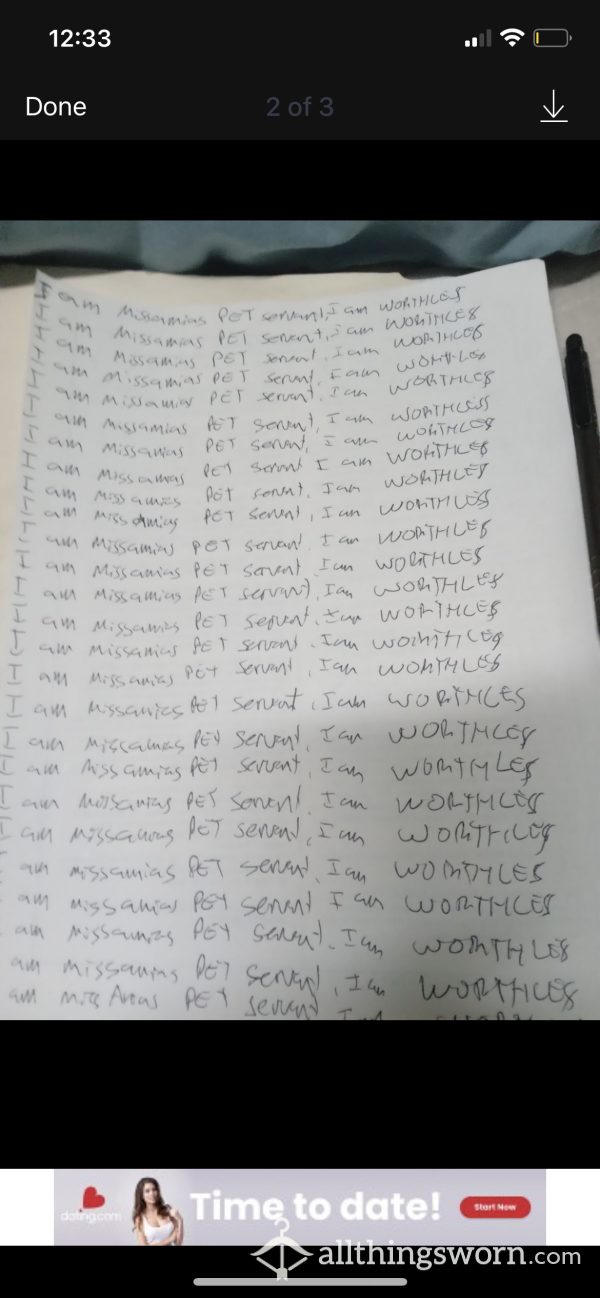 12:33
Done
2 of 3
I am Missamias PET servant, I am WORTHLES
I am Missamias PET servent, i am WORTHLES
I am Missamias PET servent. I am WORTHLES
I am Missamias PET servent, I am WORTHLES
I am Missamias PET servent. I am WORTHLES
I am Missamias PET servent, I am WORTHLESS
I am Missamias PET servent, I am WORTHLES
I am Missamias PET servent I am WORTHLES
I am Missamias PET servent. I am WORTHLES
I am Miss Amias PET servent, I am WORTHLES
I am Missamias PET servent. I am WORTHLES
I am Missamias PET servent. I am WORTHLES
I am Missamias PET servent, I am WORTHLES
I am Missamias PET servent. I am WORTHLES
I am Missamias PET servent. I am WORTHLES
I am Missamias PET servent, I am WORTHLES
I am Missamias PET servent, I am WORTHLES
I am Missamias PET servent, I am WORTHLES
I am Missamias PET servent, I am WORTHLES
I am Missamias PET servent. I am WORTHLES
I am Missamias PET servent, I am WORTHLES
am missamias PET servent, I am WORTHLES
am missamias PET servent I am WORTHLES
am missamias PET servent. I am WORTHLES
am missamias PET servent, I am WORTHLES
am Miss Amias PET servent I am
dating.com
Time to date!
Start Now
allthingsworn.com